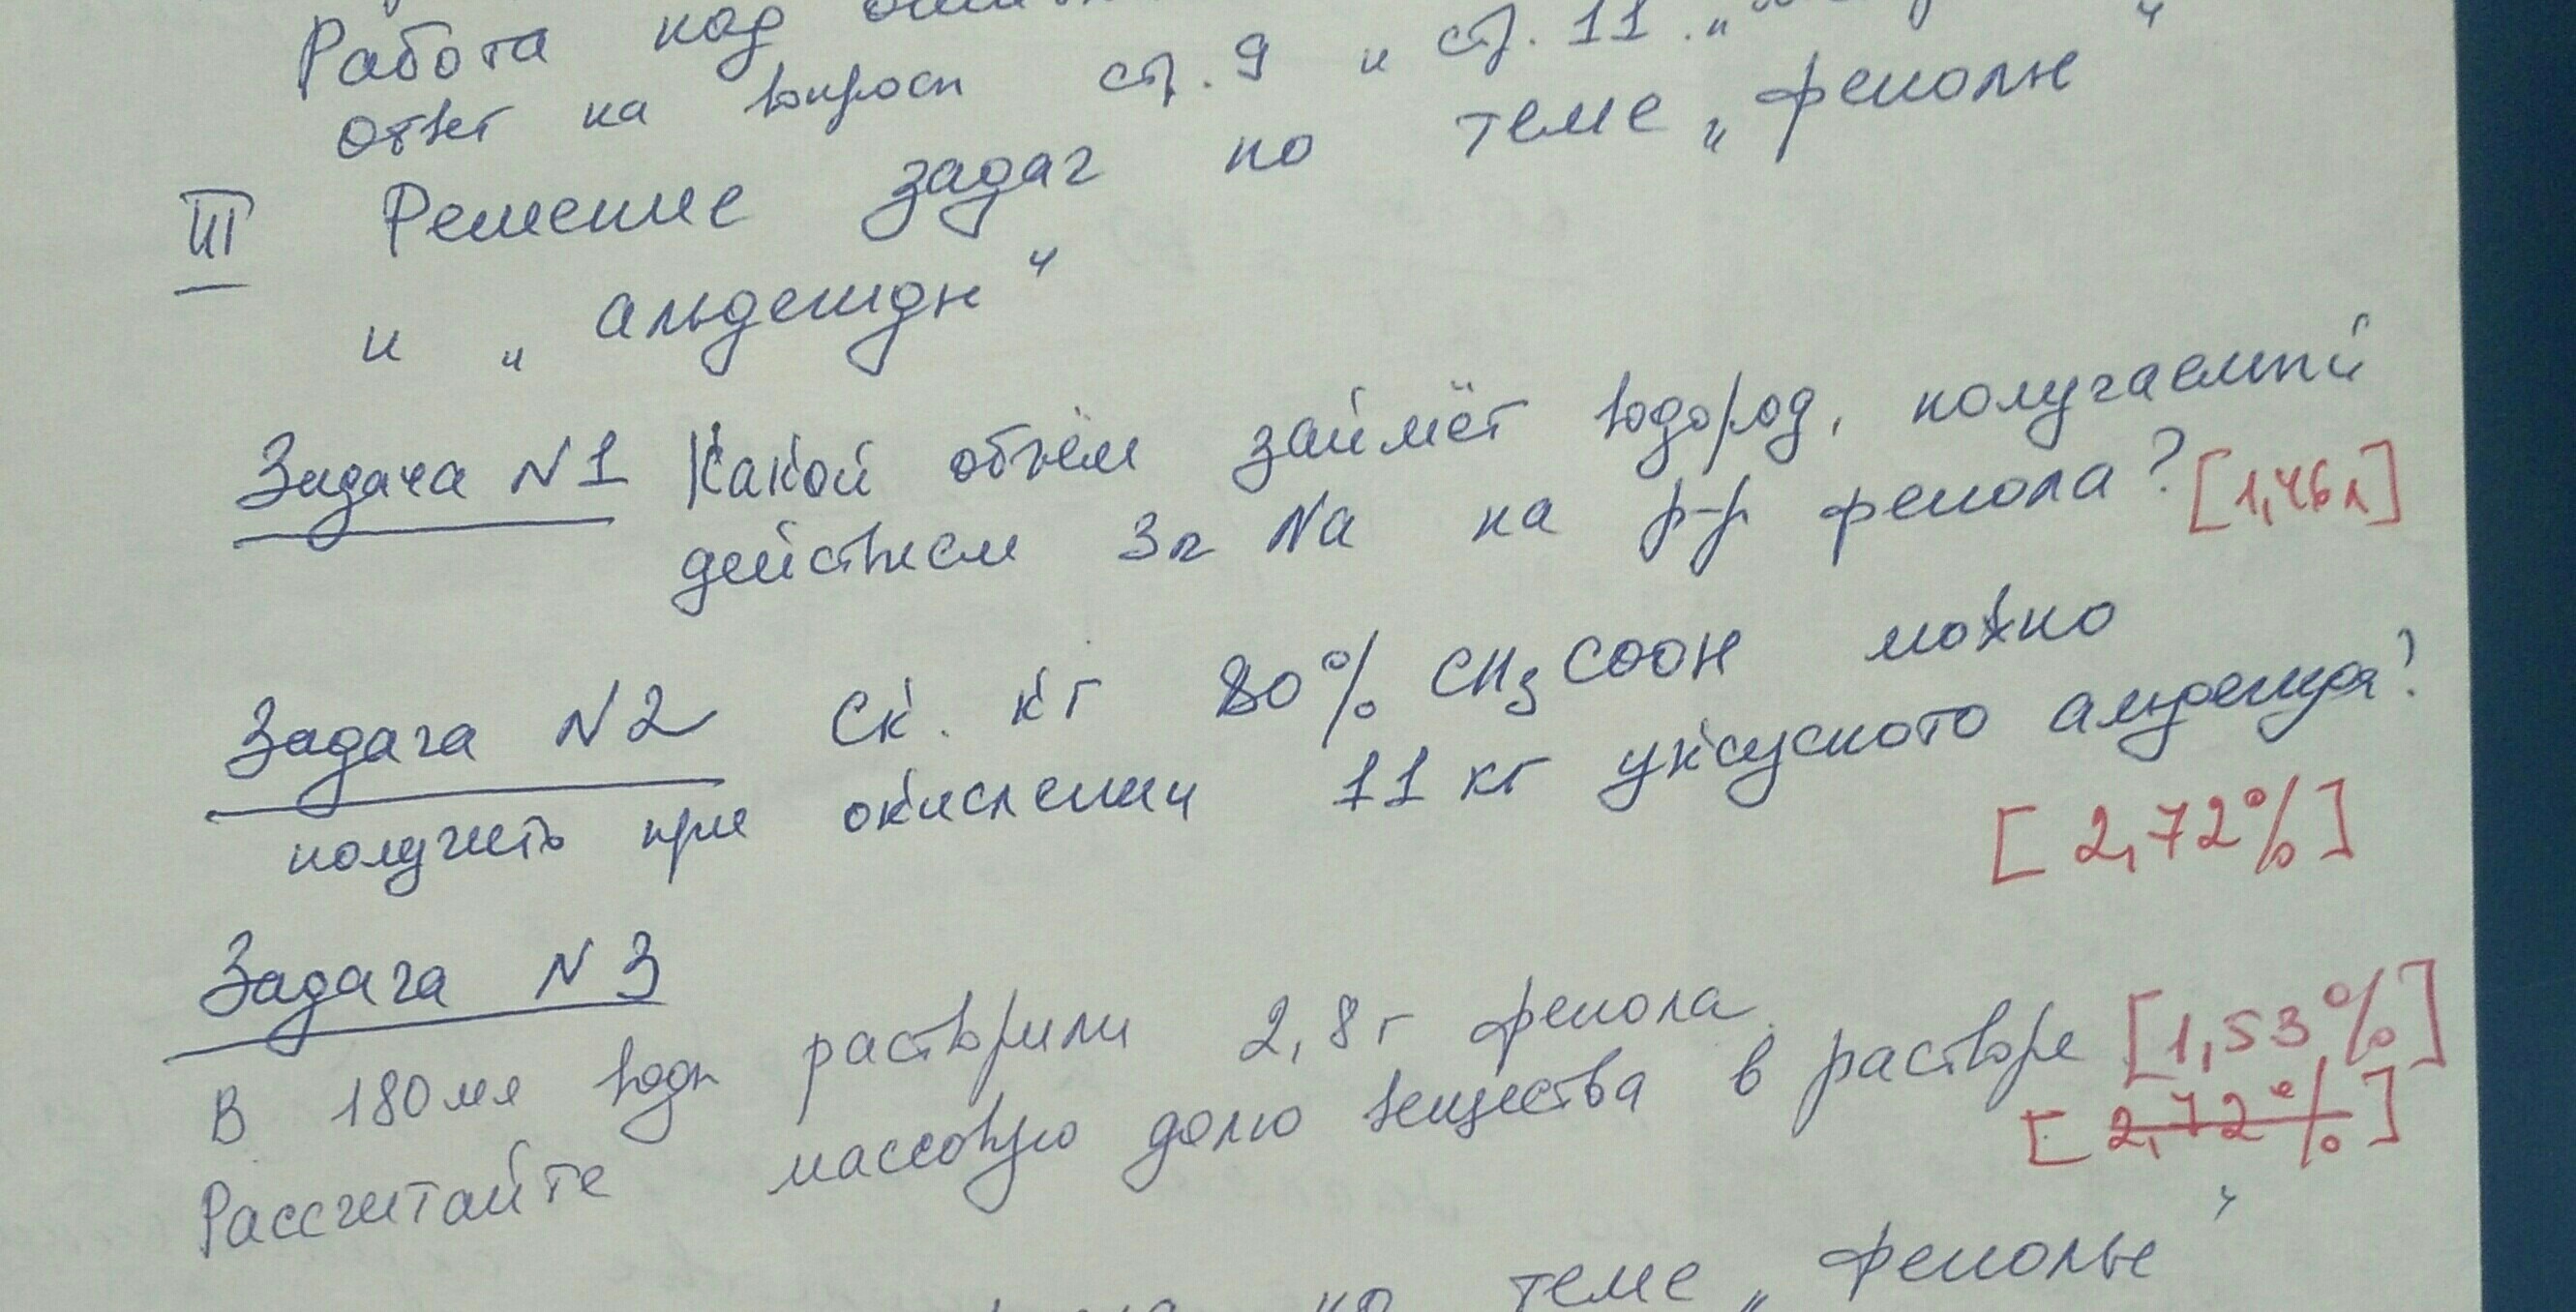 Работа над
Ответ на вопросы стр. 9 и стр. 11. "
III Решение задач по теме „фенолы"
и „альдегиды"
Задача N1 Какой объём займёт водород, получаемый
действием 3г Na на р-р фенола? [1,46л]
Задача N2 Ск. кг 80% CH3COOH можно
получить при окислении 11 кг уксусного альдегида?
[2,72%]
Задача N3
В 180мл воды растворили 2,8г фенола.
Рассчитайте массовую долю вещества в растворе [1,53%]
[2,72%]
по теме „фенолы"